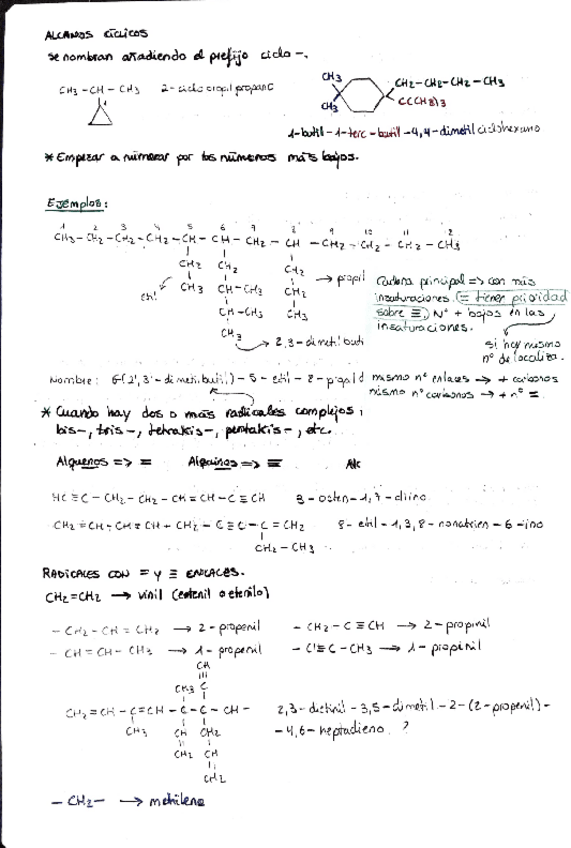 ALCANOS CÍCLICOS
Se nombran añadiendo el prefijo ciclo-.
CH3 - CH - CH3 2-ciclopropil propano
CH3 CH2-CH2-CH2-CH3
CH3 C(CH3)3
1-butil-1-terc-butil-4,4-dimetil ciclohexano
* Empezar a numerar por los números más bajos.
Ejemplos:
1 2 3 4 5 6 7 8 9 10 11 12
CH3-CH2-CH2-CH2-CH-CH-CH2-CH-CH2-CH2-CH2-CH3
CH2 CH2 CH2
etil CH3 CH-CH3 CH2 → propil
CH-CH3 CH3
CH3 → 2,3-dimetil butil
Cadena principal => con más
insaturaciones. (= tienen prioridad
sobre ≡.) Nº + bajos en las
insaturaciones.
si hay mismo
nº de localiza.
Nombre: 6-(2',3'-dimetilbutil)-5-etil-8-propil d
mismo nº enlaces → + carbonos
mismo nº carbonos → + nº =.
* Cuando hay dos o más radicales complejos,
bis-, tris-, tetrakis-, pentakis-, etc.
Alquenos => = Alquinos => ≡ Alc
HC≡C-CH2-CH2-CH=CH-C≡CH 3-octen-1,7-diino
CH2=CH-CH=CH-CH2-C≡C-C=CH2 8-etil-1,3,8-nonatrien-6-ino
CH2-CH3
RADICALES CON = Y ≡ ENLACES.
CH2=CH2 → vinil (etenil o eterilo)
-CH2-CH=CH2 → 2-propenil -CH2-C≡CH → 2-propinil
-CH=CH-CH3 → 1-propenil -C≡C-CH3 → 1-propinil
CH
≡
CH3 C
CH2=CH-C=CH-C-C-CH-
CH3 CH CH2
CH2 CH
CH2
2,3-dietinil-3,5-dimetil-2-(2-propenil)-
-4,6-heptadieno. ?
-CH2- → metileno